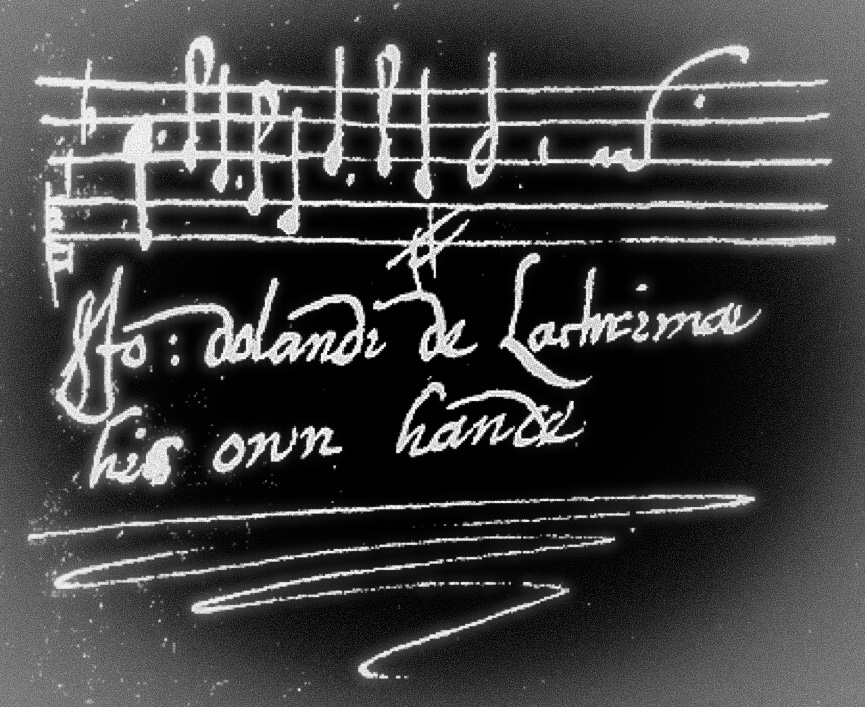 Jo: dolandi de Lachrimae
his own hande